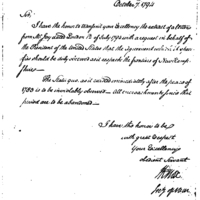 October 7. 1794
Sir,
I have the honor to transmit your Excellency the extract of a letter
from Mr. Jay dated London 12 of July 1794 with a request in behalf of
the President of the United States that the agreement
fies should be duly observed as it respects the province of New Hamp
shire.
The status quo, as it existed immediately after the peace of
1783 is to be inviolably observed. All encroachments since that
period are to be abandoned.
I have the honor to be
with great respect
your Excellency's
obedient servant